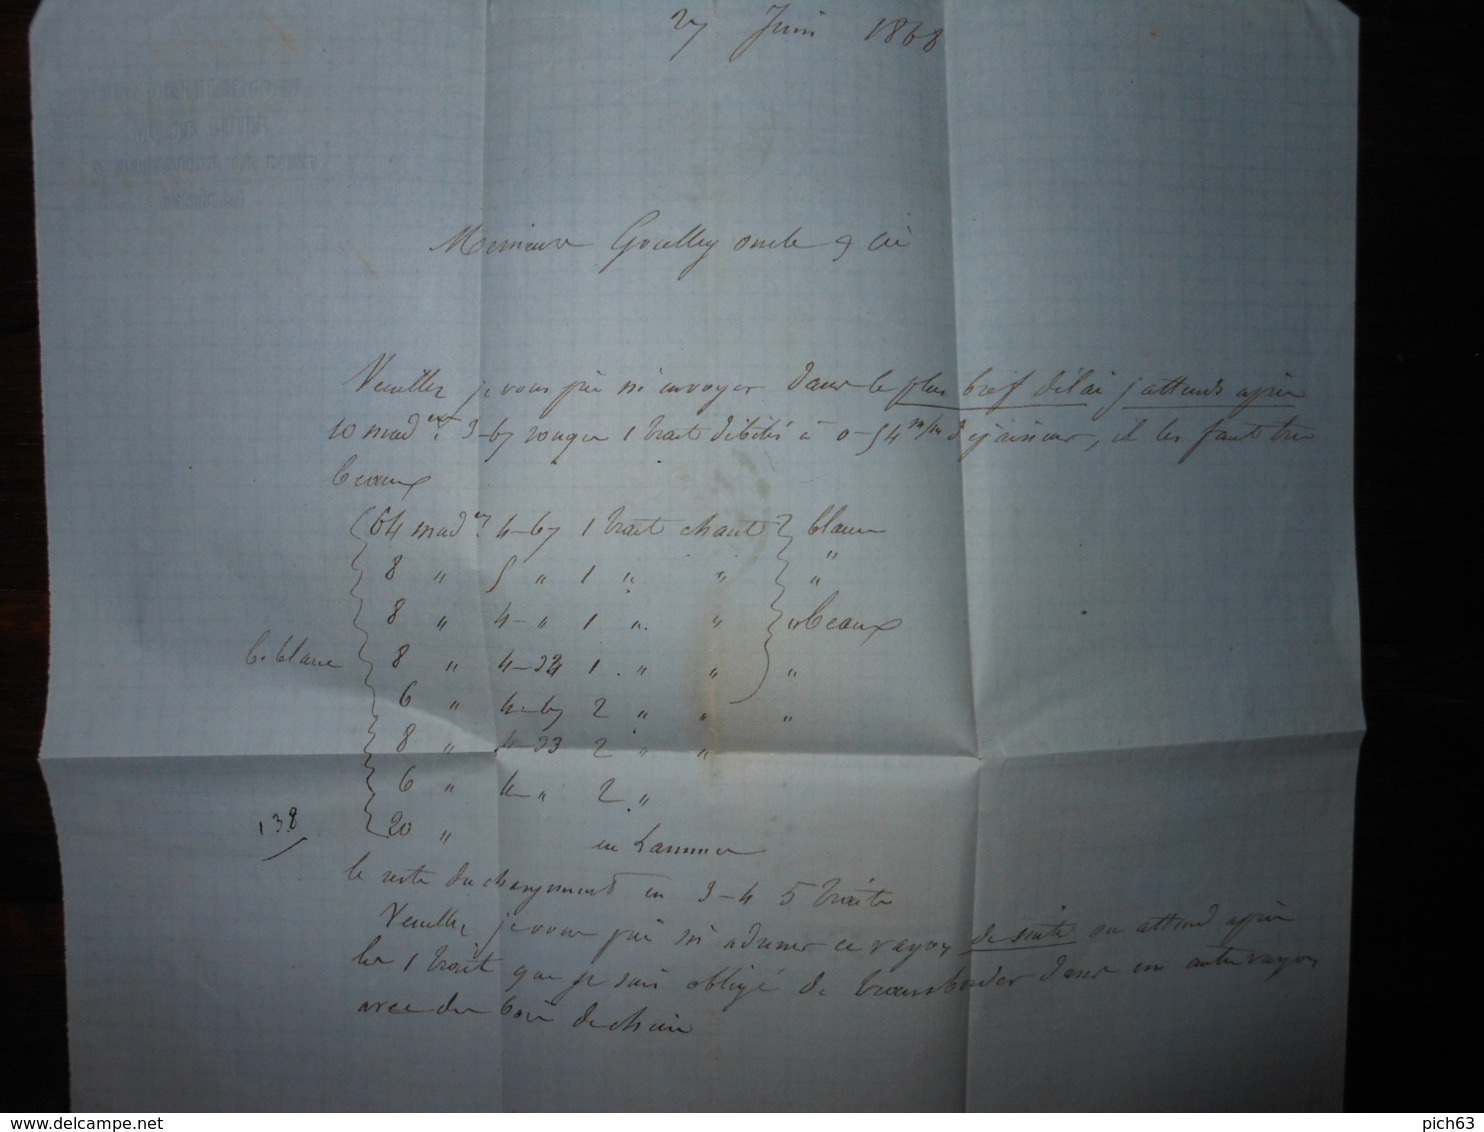 27 Juin 1868
Messieurs Gouelley oncle & Cie
Veuillez je vous prie m'envoyer dans le plus bref délai j'attends après
10 mad.ers 3-67 rouges 1 trait débités à 0-54 m/m d'épaisseur, il les faut tres
beaux
64 mad.ers 4-67 1 trait chaut blanc
8 " 5 " 1 " " "
8 " 4 - " 1 " " " beaux
b. blanc 8 " 4-33 1 " " "
6 " 4-67 2 " " "
8 " 4-33 2 " "
6 " 4 - " 2 "
138 20 " en
le reste du chargement en 3-4 5 traits
Veuillez je vous prie m'adresser ce wagon de suite on attend après
les 1 trait que je suis obligé de transborder dans un autre wagon
avec du bois de chêne
delcampe.net
pich63